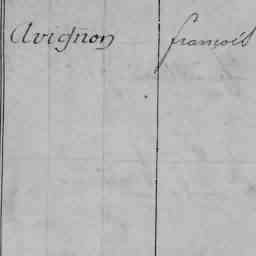 Avignon françois